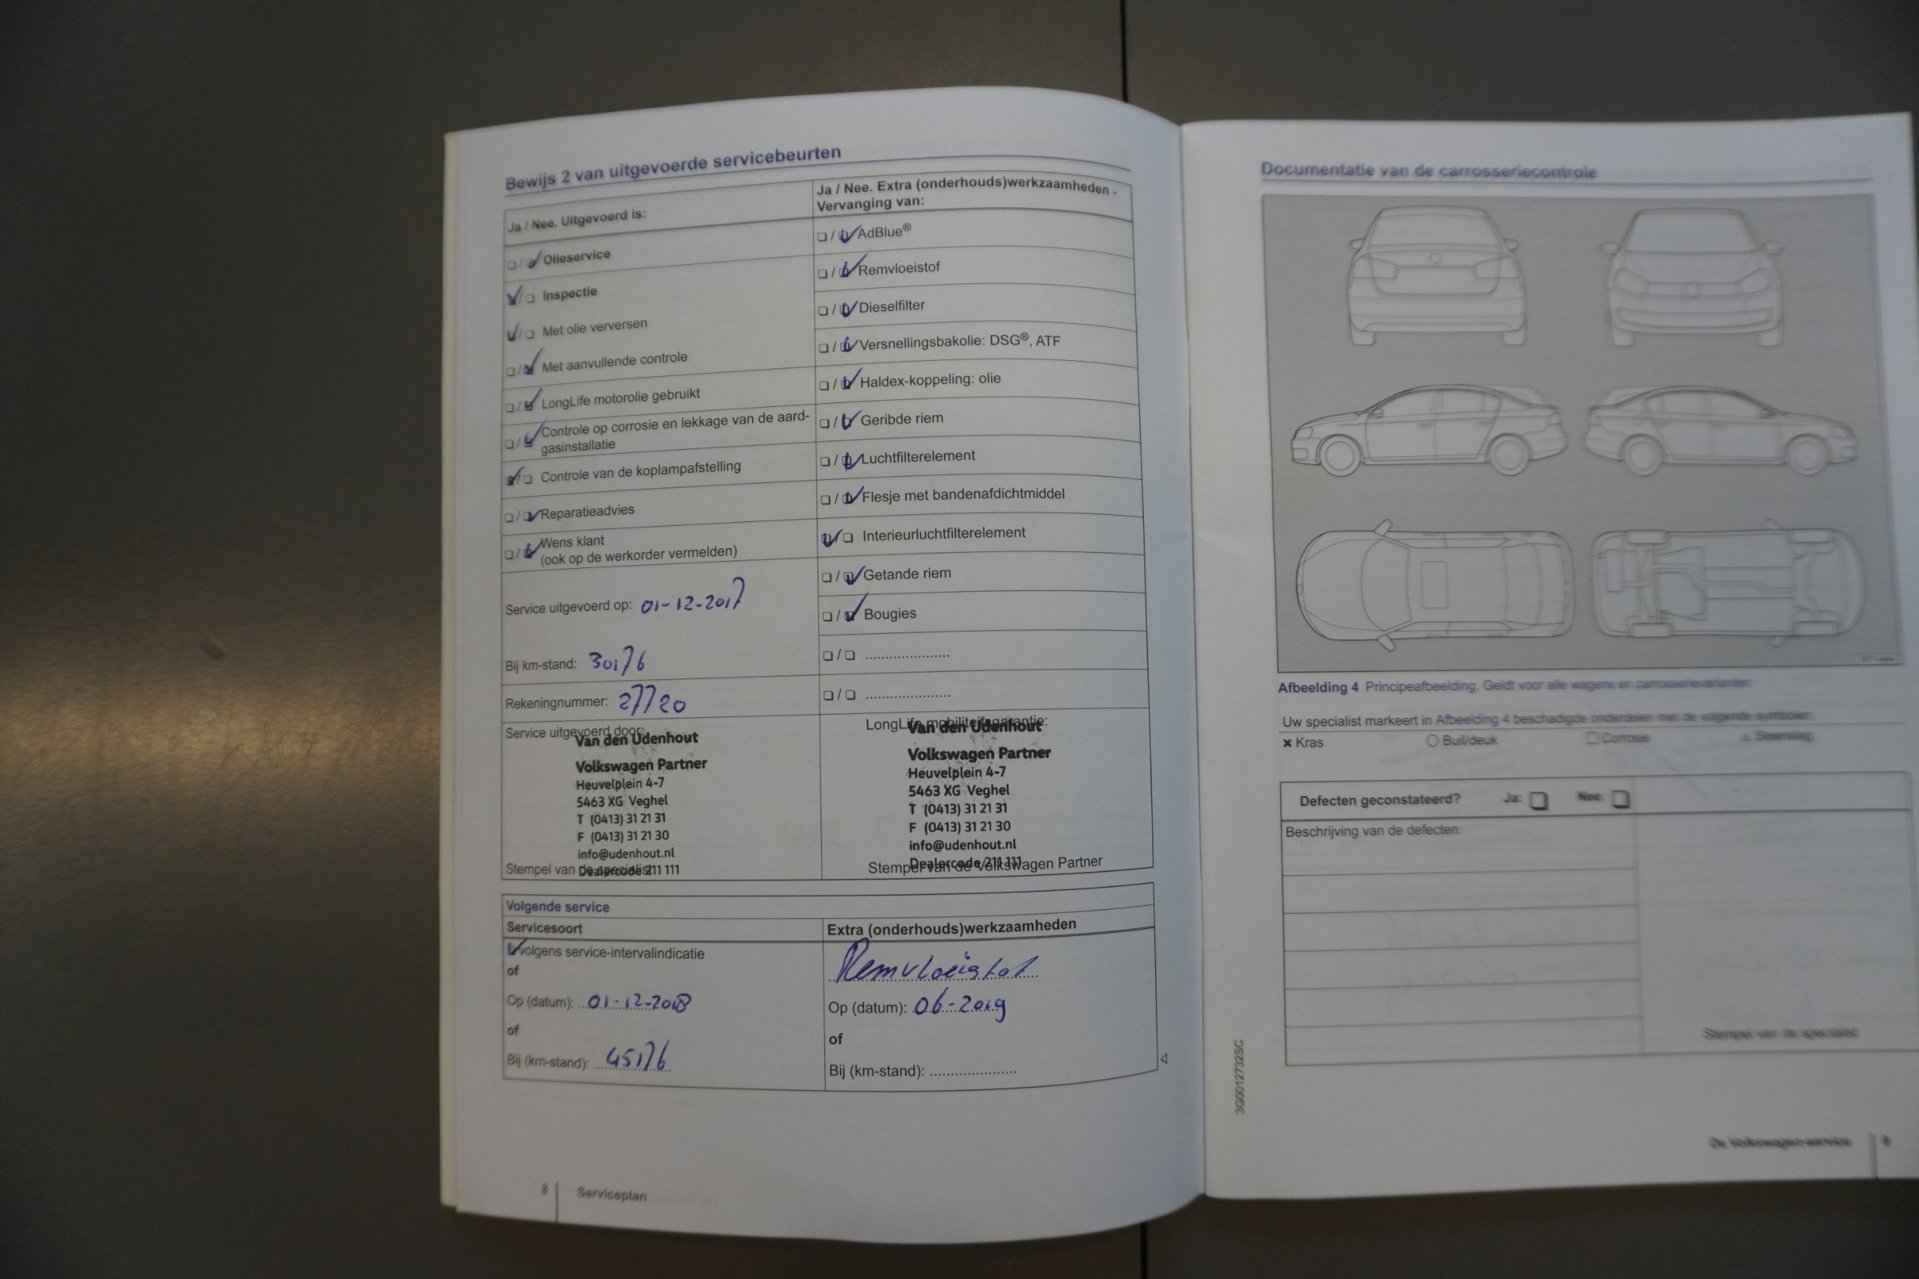 Bewijs 2 van uitgevoerde servicebeurten
Ja / Nee. Uitgevoerd is:
❏ / ✓ Olieservice
✓ / ❏ Inspectie
✓ / ❏ Met olie verversen
❏ / ✓ Met aanvullende controle
❏ / ✓ LongLife motorolie gebruikt
❏ / ✓ Controle op corrosie en lekkage van de aard-
gasinstallatie
✓ / ❏ Controle van de koplampafstelling
❏ / ✓ Reparatieadvies
❏ / ✓ Wens klant
(ook op de werkorder vermelden)
Service uitgevoerd op: 01-12-2017
Bij km-stand: 30176
Rekeningnummer: 27720
Service uitgevoerd door:
Van den Udenhout
Volkswagen Partner
Heuvelplein 4-7
5463 XG Veghel
T (0413) 31 21 31
F (0413) 31 21 30
info@udenhout.nl
Dealercode 211 111
Stempel van de specialist
Ja / Nee. Extra (onderhouds)werkzaamheden -
Vervanging van:
❏ / ✓ AdBlue®
❏ / ✓ Remvloeistof
❏ / ✓ Dieselfilter
❏ / ✓ Versnellingsbakolie: DSG®, ATF
❏ / ✓ Haldex-koppeling: olie
❏ / ✓ Geribde riem
❏ / ✓ Luchtfilterelement
❏ / ✓ Flesje met bandenafdichtmiddel
✓ / ❏ Interieurluchtfilterelement
❏ / ✓ Getande riem
❏ / ✓ Bougies
❏ / ❏ .....................
❏ / ❏ .....................
LongLife mobiliteitsgarantie:
Van den Udenhout
Volkswagen Partner
Heuvelplein 4-7
5463 XG Veghel
T (0413) 31 21 31
F (0413) 31 21 30
info@udenhout.nl
Dealercode 211 111
Stempel van de Volkswagen Partner
Volgende service
Servicesoort
✓ Volgens service-intervalindicatie
of
Op (datum): 01-12-2018
of
Bij (km-stand): 45176
Extra (onderhouds)werkzaamheden
Remvloeistof
Op (datum): 06-2019
of
Bij (km-stand): .....................
8 Serviceplan
Documentatie van de carrosseriecontrole
Afbeelding 4 Principeafbeelding. Geldt voor alle wagens en carrosserievarianten.
Uw specialist markeert in Afbeelding 4 beschadigde onderdelen met de volgende symbolen:
× Kras ○ Buil/deuk □ Corrosie △ Steenslag
Defecten geconstateerd? Ja: ❏ Nee: ❏
Beschrijving van de defecten:
Stempel van de specialist
3G0012732SC
De Volkswagen-service 9